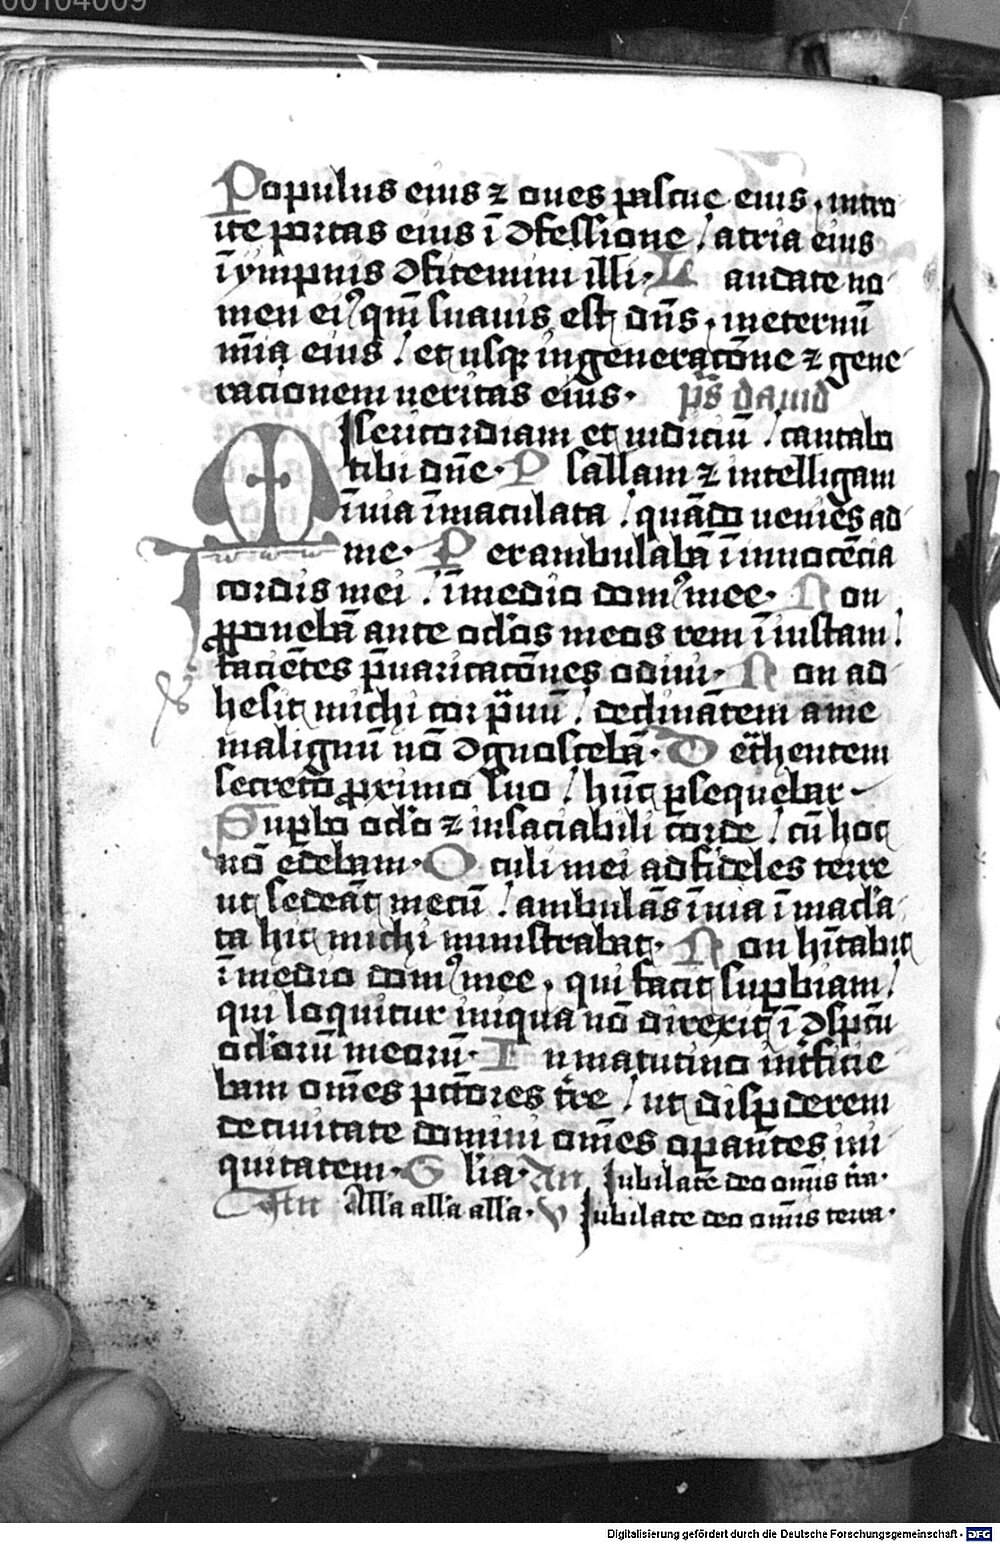 00104009
Populus eius ⁊ oues pascue eius, intro
ite portas eius ī ꝯfessione / atria eius
ī ympnis ꝯfitemini illi. Laudate no
men eiꝰ qm̄ suauis est dn̄s, in eternū
mīa eius / et usqꝫ in generacōne ⁊ gene
racionem ueritas eius. ps̄ dauid
Misericordiam et iudiciū / cantabo
tibi dn̄e. Psallam ⁊ intelligam
ī uia īmaculata / quādo uenies ad
me. Perambulabā ī innocēcia
cordis mei / ī medio domꝰ mee. Non
ꝓponebā ante oclos meos rem īiustam /
faciētes p̄uaricacōnes odiui. Non ad
hesit michi cor prauū / declinātem a me
malignū nō ꝯgnoscebā. Detrhentem
secreto ꝓximo suo / hūc ꝑsequebar
Supbo oclo ⁊ insaciabili corde / cū hoc
nō edebam. Oculi mei ad fideles terre
ut sedeāt mecū / ambulās ī uia īmacla
ta hic michi ministrabat. Non hītabit
ī medio domꝰ mee, qui facit supbiam /
qui loquitur iniqua nō direxit ī ꝯspcū
oclorū meorū. In matutino intficie
bam om̄es pctōres tr̄e / ut disꝑderem
de ciuitate domini om̄es oꝑantes ini
quitatem. Glīa. An Iubilate deo omīs tr̄a.
An Allā allā allā. V Iubilate deo omīs terra.
Digitalisierung gefördert durch die Deutsche Forschungsgemeinschaft - DFG